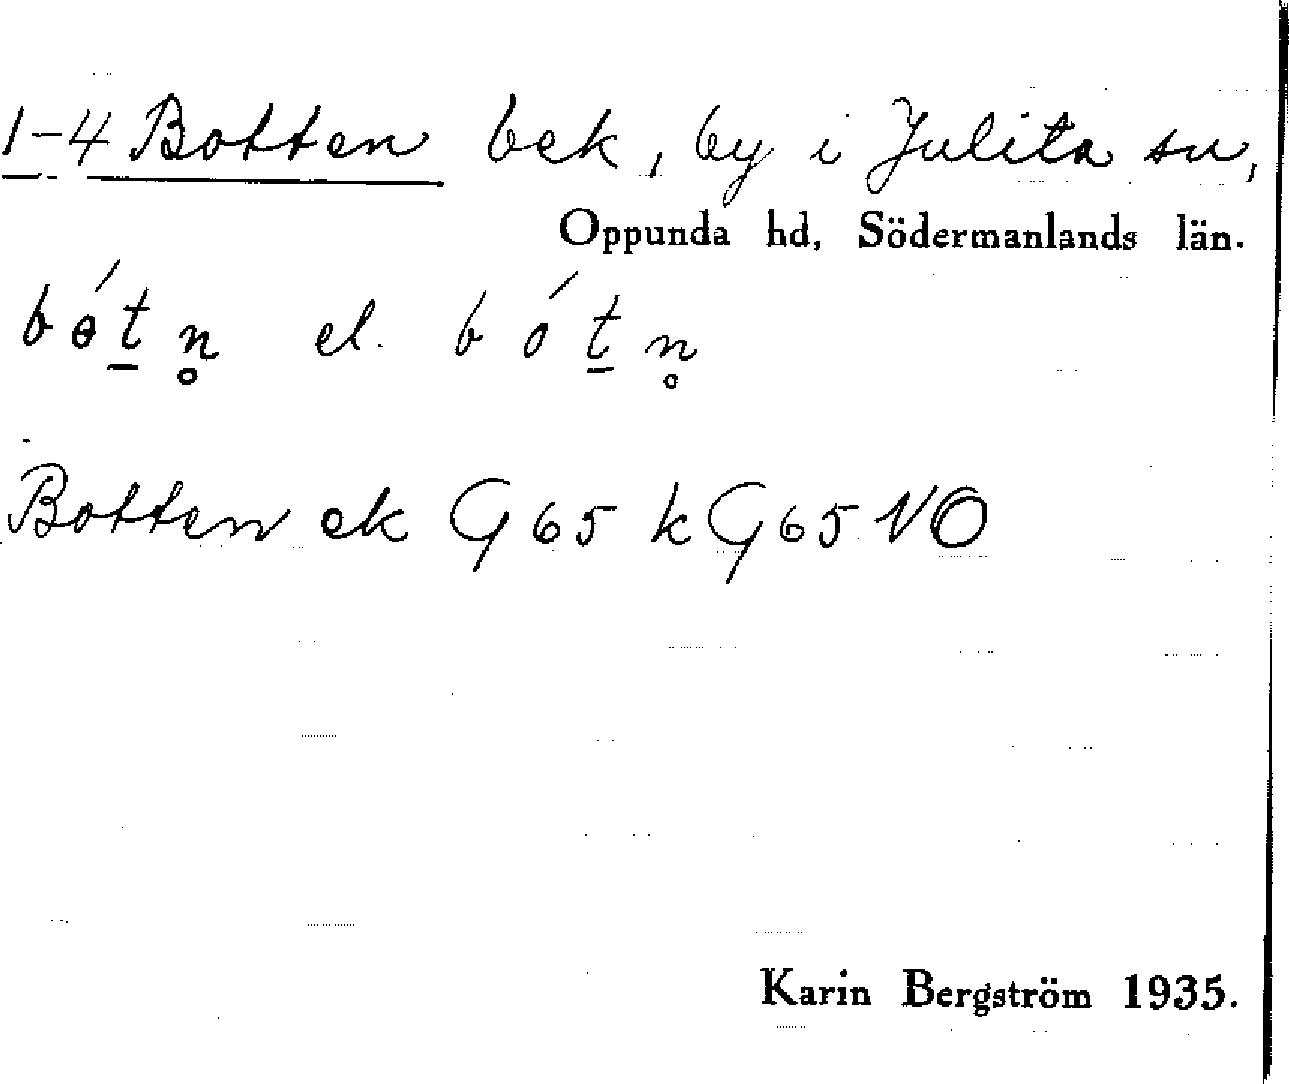 1-4 Botten bek, by i Julita sn,
Oppunda hd, Södermanlands län.
bɵ́t̲n̥ el. bót̲n̥
Botten ek G 65 k G 65 NO
Karin Bergström 1935.